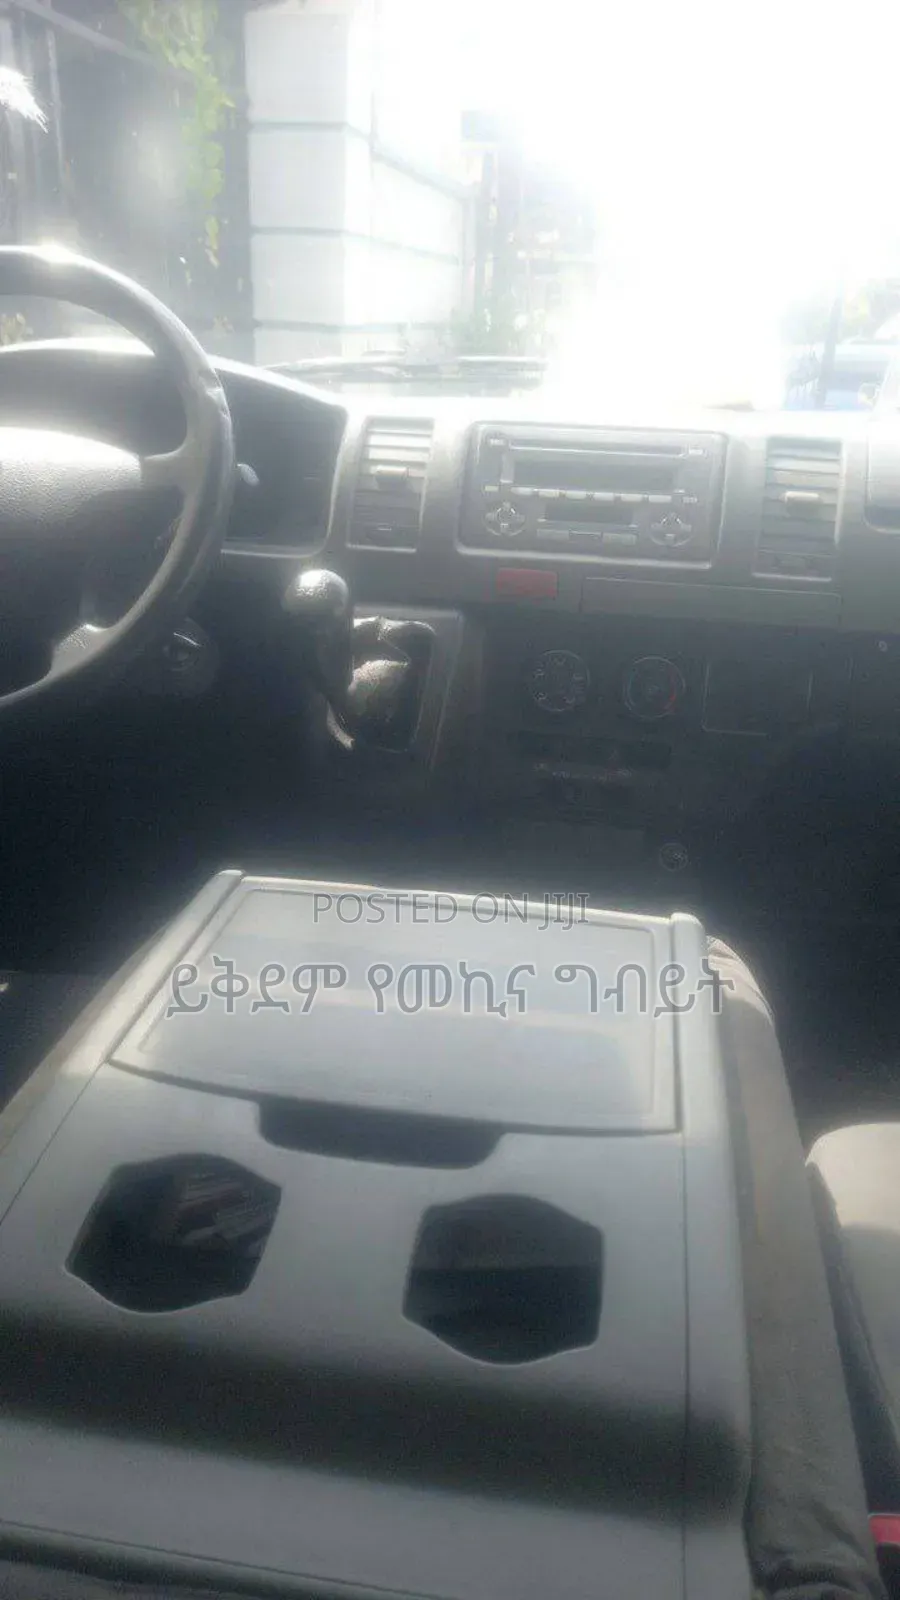 POSTED ON JIJI
ይቅደም የመኪና ግብይት